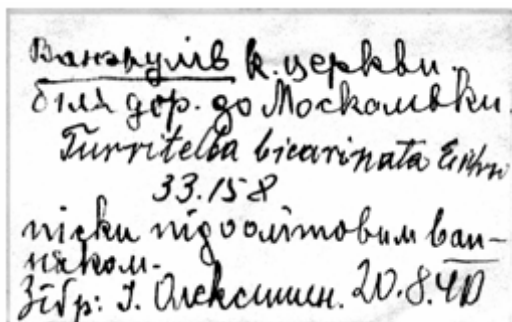 Ванжулів к. церкви.
біля дор. до Москалівки.
Turritella bicarinata Eichw
33.158
піски під оолітовим вап-
няком.
Зібр: І. Олексишин. 20.8.40